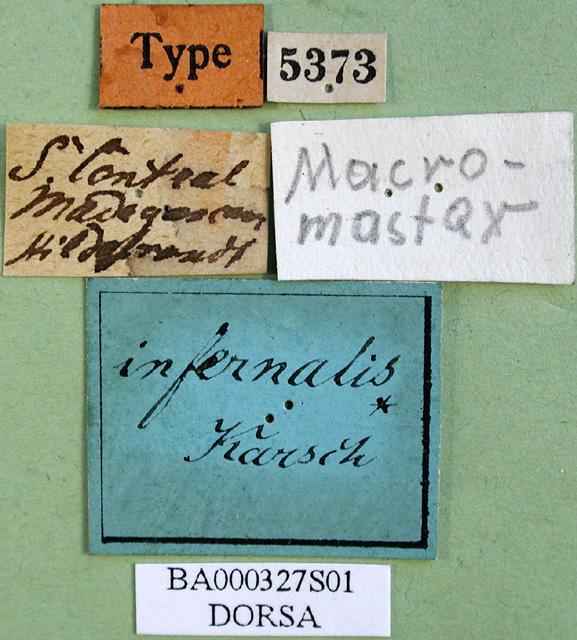 Type
5373
S. Central
Madagascar
Hildebrandt
Macro-
mastax
infernalis
*
Karsch
BA000327S01
DORSA